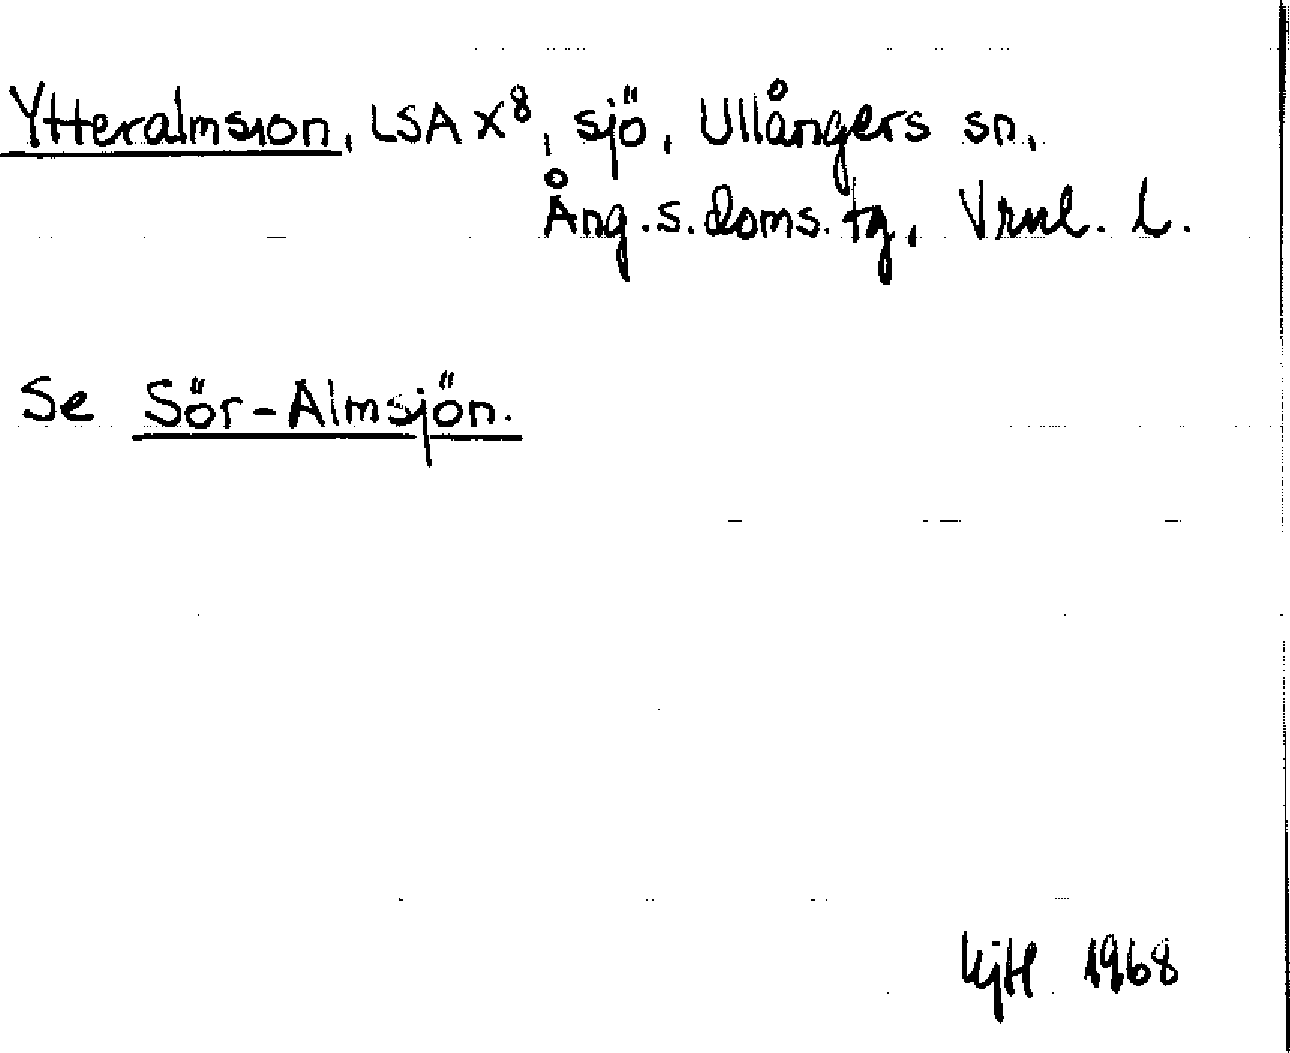 Ytteralmsion, LSA X⁸, sjö, Ullångers sn,
Ång. s. doms. tg, Vrnl. l.
Se Sör-Almsjön.
1968